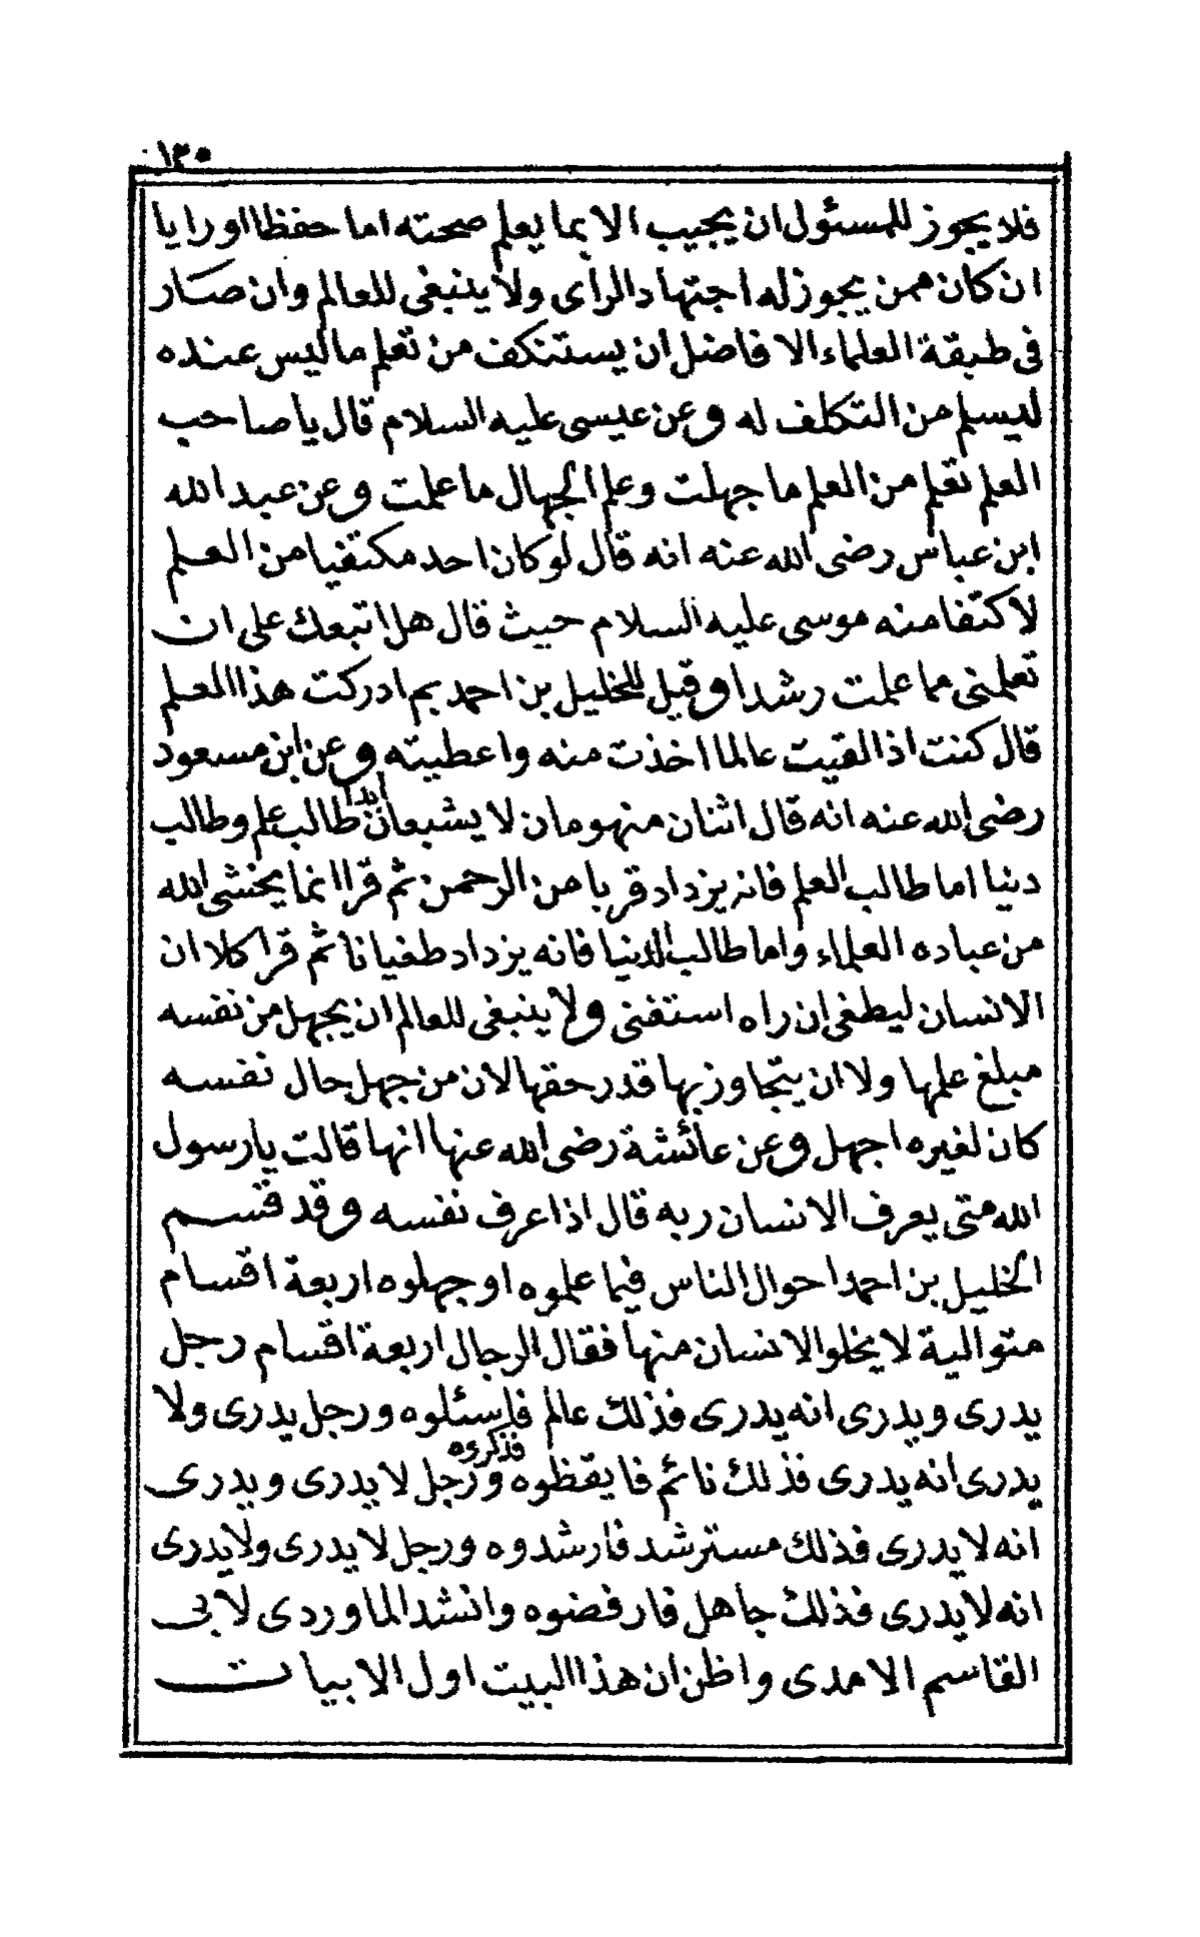 ١٣٥
فلا يجوز للمسئول ان يجيب الا بما يعلم صحته اما حفظا او رايا
ان كان ممن يجوز له اجتهاد الراى ولا ينبغى للعالم وان صار
فى طبقة العلماء الافاضل ان يستنكف من تعلم ما ليس عنده
ليسلم من التكلف له وعن عيسى عليه السلام قال يا صاحب
العلم تعلم من العلم ما جهلت وعلم الجهال ما علمت وعن عبد الله
ابن عباس رضى الله عنه انه قال لو كان احد مكتفيا من العلم
لاكتفا منه موسى عليه السلام حيث قال هل اتبعك على ان
تعلمنى مما علمت رشدا وقيل للخليل بن احمد بم ادركت هذا العلم
قال كنت اذا لقيت عالما اخذت منه واعطيته وعن ابن مسعود
رضى الله عنه انه قال اثنان منهومان لا يشبعان ابدا طالب علم وطالب
دنيا اما طالب العلم فانه يزداد قربا من الرحمن ثم قرا انما يخشى الله
من عباده العلماء واما طالب الدنيا فانه يزداد طغيانا ثم قرا كلا ان
الانسان ليطغى ان راه استغنى ولا ينبغى للعالم ان يجهل من نفسه
مبلغ علمها ولا ان يتجاوز بها قدر حقها لان من جهل حال نفسه
كان لغيره اجهل وعن عائشة رضى الله عنها انها قالت يا رسول
الله متى يعرف الانسان ربه قال اذا عرف نفسه وقد قسم
الخليل بن احمد احوال الناس فيما علموه او جهلوه اربعة اقسام
متوالية لا يخلو الانسان منها فقال الرجال اربعة اقسام رجل
يدرى ويدرى انه يدرى فذلك عالم فاسئلوه ورجل يدرى ولا
يدرى انه يدرى فذلك نائم فايقظوه فذكروه ورجل لا يدرى ويدرى
انه لا يدرى فذلك مسترشد فارشدوه ورجل لا يدرى ولا يدرى
انه لا يدرى فذلك جاهل فارفضوه وانشد الماوردى لابى
القاسم الامدى واظن ان هذا البيت اول الابيات